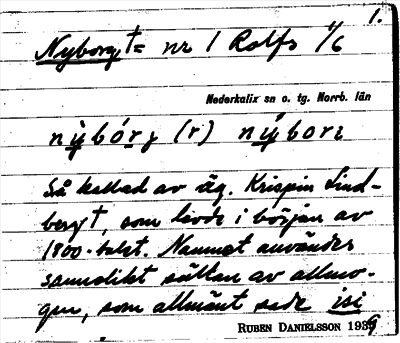 1.
Nyborg†= nr 1 Rolfs 1/6
Nederkalix sn o. tg. Norrb. län
nỳbórg (r) nýbori
Så kallad av äg. Krispin Lind-
berg†, som levde i början av
1800-talet. Namnet användes
sannolikt sällan av allmo-
gen, som allmänt sade isi
RUBEN DANIELSSON 1939